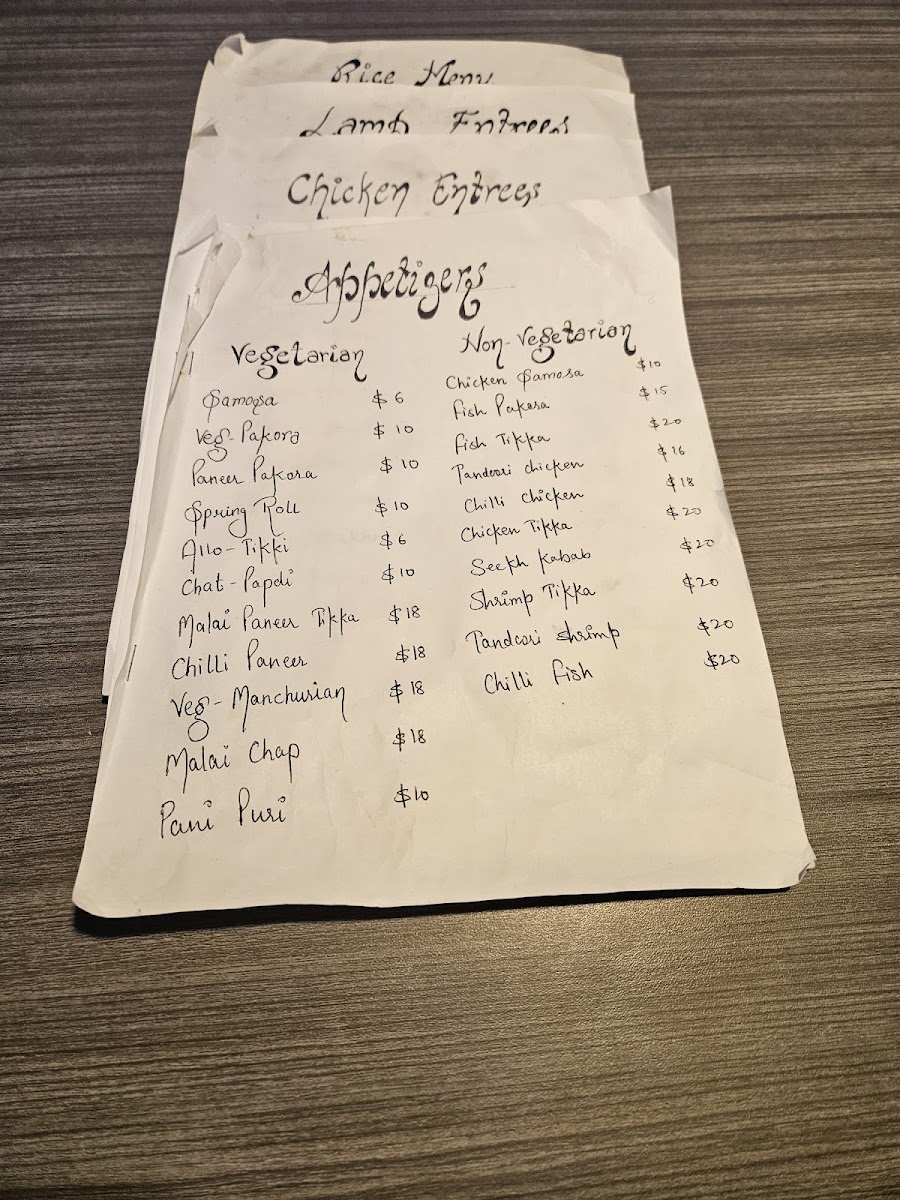 Rice Menu
Lamb Entrees
Chicken Entrees
Appetigers
Vegetarian
Samosa $6
Veg-Pakora $10
Paneer Pakora $10
Spring Roll $10
Allo-Tikki $6
Chat-Papdi $10
Malai Paneer Tikka $18
Chilli Paneer $18
Veg-Manchurian $18
Malai Chap $18
Pani Puri $10
Non-Vegetarian
Chicken Samosa $10
Fish Pakora $15
Fish Tikka $20
Tandoori chicken $16
Chilli chicken $18
Chicken Tikka $20
Seekh Kabab $20
Shrimp Tikka $20
Tandoori Shrimp $20
Chilli fish $20